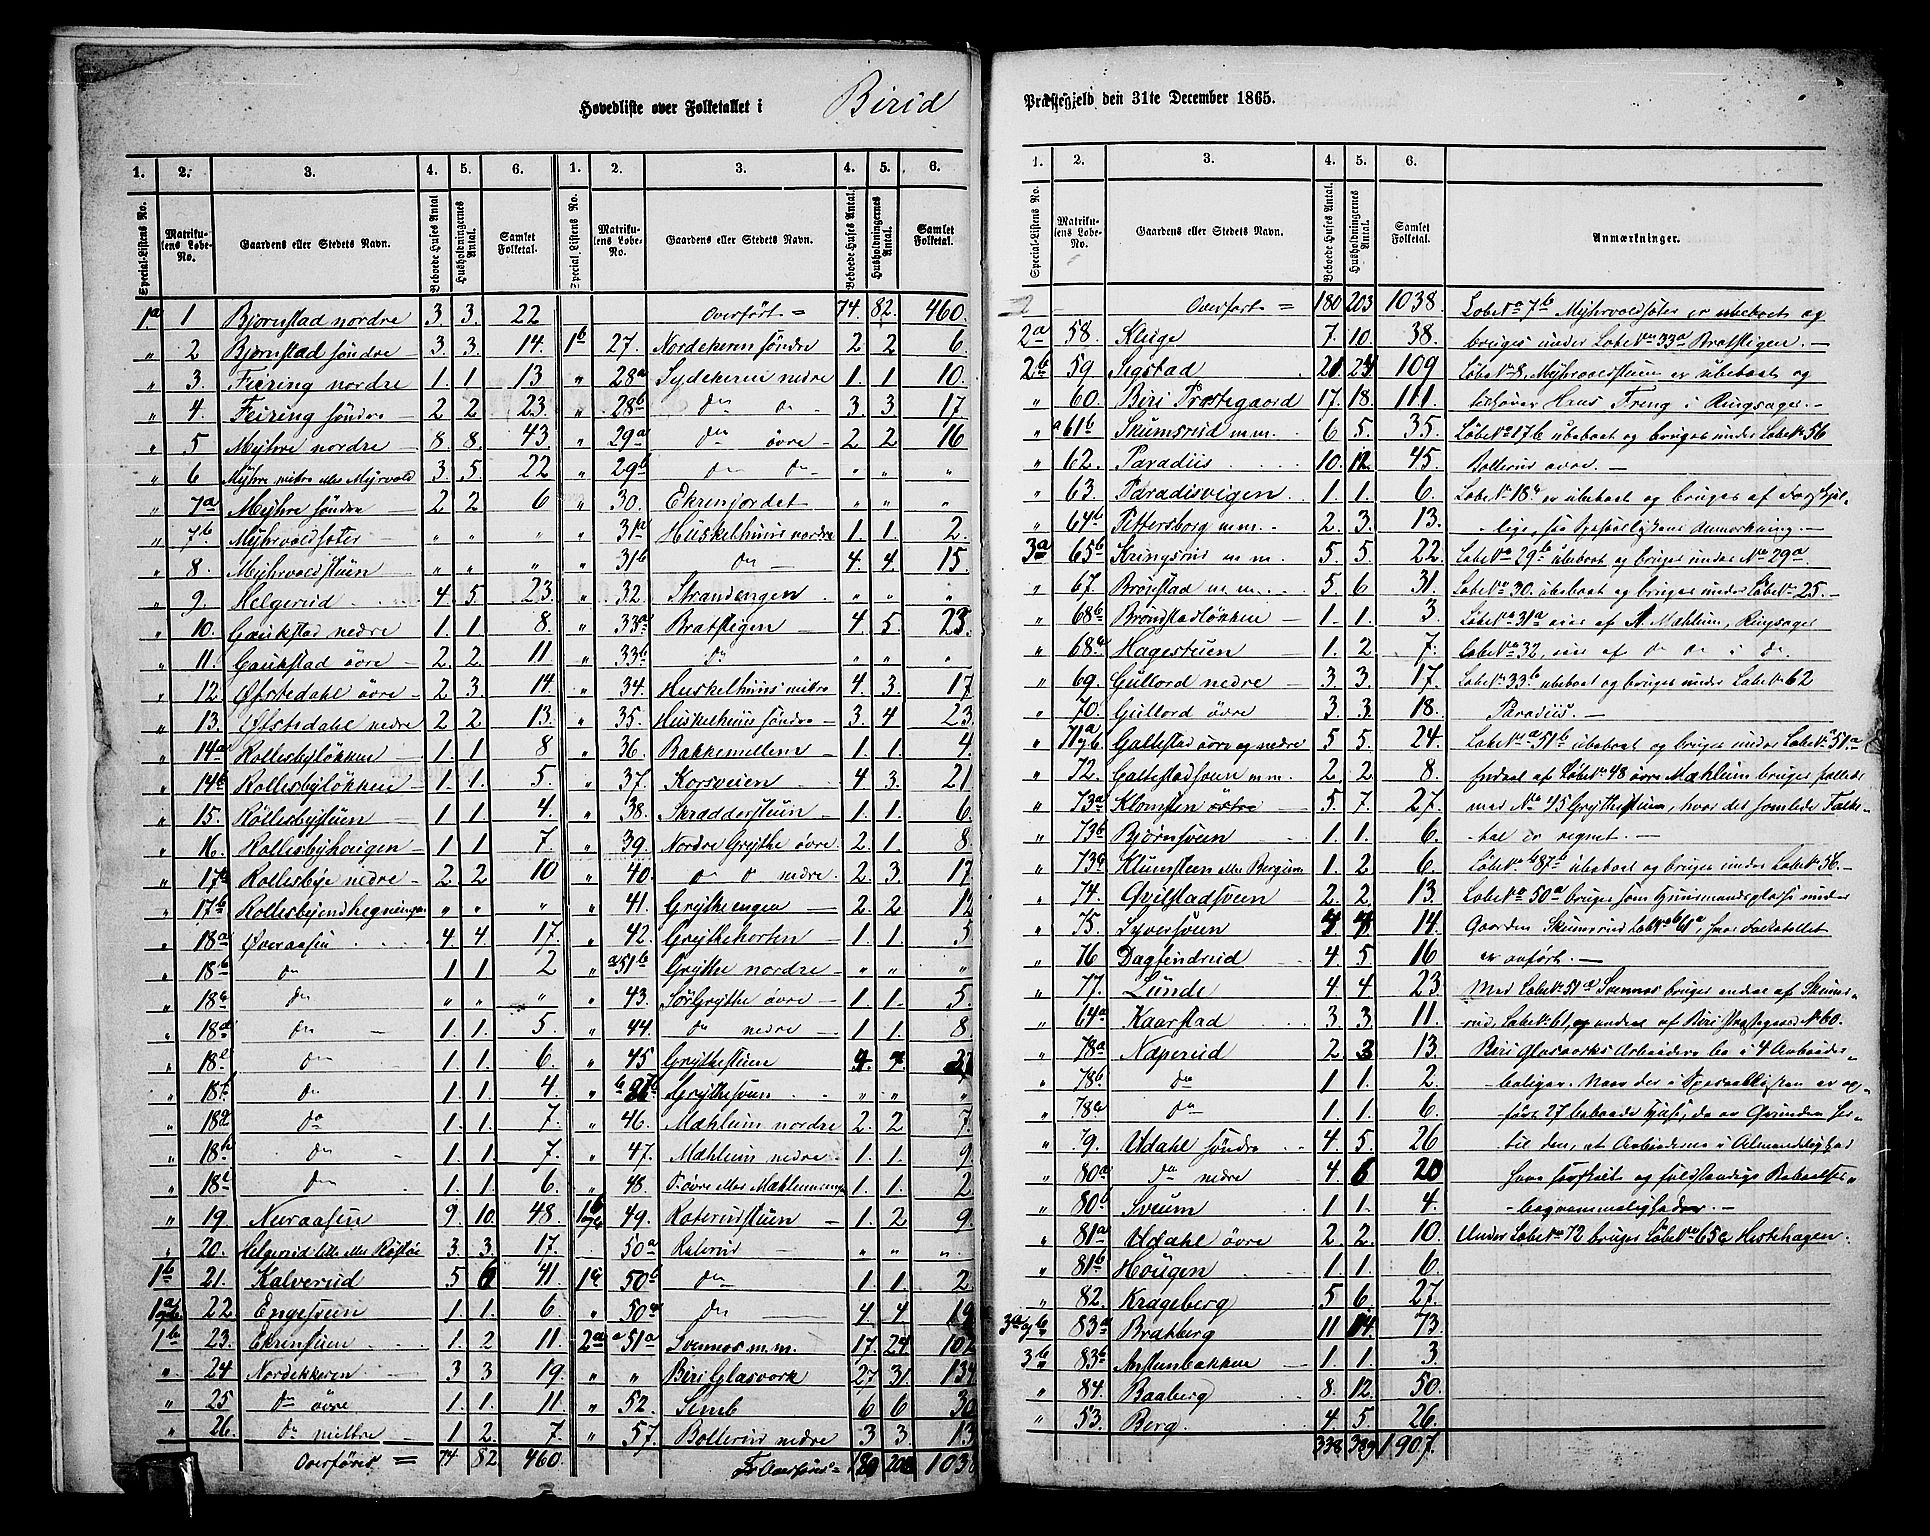 Hovedliste over Folketallet i Birid
Præstegjeld den 31te December 1865.
1. 2. 3. 4. 5. 6. 1. 2. 3. 4. 5. 6.
Special-Listens No. Matrikulens Løbe-No. Gaardens eller Stedets Navn. Beboede Huses Antal Husholdningernes Antal Samlet Folketal. Special-Listens No. Matrikulens Løbe-No. Gaardens eller Stedets Navn. Beboede Huses Antal. Husholdningernes Antal. Samlet Folketal.
1a 1 Bjørnstad nordre 3. 3. 22 Overført = 74. 82. 460.
" 2 Bjørnstad søndre 3. 3. 14. 1b 27. Nordekeren søndre 2 2 6.
" 3. Feiring nordre 1. 1 13 " 28a Sydekeren nedre 1. 1 10.
" 4. Feiring søndre 2 2 23. " 28b do do 3. 3 17.
" 5 Myhre nordre 8 8. 43. " 29a do øvre 2 2 16
" 6 Myhre mitre eller Myrvold 3. 5. 22 " 29b do do " " "
" 7a Myhre søndre 2 2 6 " 30. Ekrenjordet " " "
" 7b Myhrvoldsæter " " " " 31a Huskelhuus nordre 1. 1 2.
" 8. Myhrvoldstuen " " " " 31b do 4. 4. 15.
" 9. Helgerud 4. 5. 23. " 32. Strandengen " " "
" 10. Gaukstad nedre 1. 1 8. " 33a Bratstigen 4. 5. 23.
" 11. Gaukstad øvre 2. 2. 11. " 33b do " " "
" 12. Øfstedahl øvre 2 3. 14. " 34. Huskelhuus mitre 4. 3. 17
" 13. Øfstedahl nedre 2 2 13. " 35. Huskelhuus søndre 3. 4 23.
" 14a Rollesbyløkken 1. 1 8 " 36. Bakkemellem 1. 1. 4.
" 14b Rollesbyløkken 1. 1. 5. " 37. Korsveien 4. 3. 21
" 15. Rollesbystuen 1. 1. 4. " 38. Skradderstuen 1. 1. 6.
" 16. Rollesbyhaugen 1. 1. 7. " 39. Nordre Grythe øvre 2. 1. 8.
" 17a Rollesbye nedre 2. 2 10 " 40. do do nedre 2. 3. 17.
" 17b Rollesbyendhegningen " " " " 41. Grytheengen 2 2 12
" 18a Øveraasen 4. 4 17. " 42. Grythehorten 1. 1. 5
" 18b do 1. 1 2 a51b Grythe nordre " " "
" 18c do " " " " 43. SørGrythe øvre 1. 1. 5.
" 18d do 1. 1. 5. " 44. do nedre 1. 1. 8.
" 18e do 1. 1. 6. " 45 Grythestuen 4. 4. 27
" 18f do 1. 1. 4. Grythesveen " " "
" 18g do 1. 1. 7. " 46. Mæhlum nordre 2. 2 7.
" 18h do 1. 1. 7. " 47. Mæhlum nedre 1. 1. 9.
" 18i do 1. 1. 6. " 48. do øvre eller Mæhlumsengen 1. 1. 2
" 19 Neraasen 9. 10. 48. 49. Roterudstuen 1. 2 9.
" 20. Helgerud lille eller Røstøe 3. 3. 17. 50a Roterud " " "
1b 21. Kalverud 5 6 41. 1c 50b do 1. 1 2.
22. Engesveen 1. 1. 6. " 50c do 4 4 19
1b 23. Ekrenstuen 1. 2 11. 2a a51a Svennæs m.m. 17. 24. 102
" 24 Nordekkeren 3 3 19. " " Biri Glasværk 27 31. 134
" 25 do øvre 1. 1. 11. " 52. Semb 6 6 30
" 26. do mittre 1. 2. 7. " 57. Bollerud nedre 3 3. 13
Overføres = 74 82 460. Overføres = 180 203 1038
1. 2. 3. 4. 5. 6.
Special-Listens No. Matrikulens Løbe-No. Gaardens eller Stedets Navn. Beboede Huses Antal. Husholdningernes Antal. Samlet Folketal. Anmærkninger.
Overført = 180 203 1038. Løbe No 7b Myhrvoldsæter er ubeboet og
2a 58. Kluge 7. 10. 38. bruges under Løbe No 33a Bratstigen. —
2b 59 Sigstad 21. 24 109 Løbe No 8, Myhrvoldstuen er ubeboet og
" 60. Biri Præstegaard 17. 18. 111. tilhører Hans Freng i Ringsager. —
" a61b Skumsrud m.m. 6 5. 35. Løbe No 17b ubeboet og bruges under Løbe No 56
" 62. Paradiis 10. 12. 45. Bollerud øvre. —
" 63. Paradisvigen 1. 1. 6. Løbe No 18c er ubeboet og bruges af Forskjel-
" 64b Pettersborg m.m. 2. 3. 13. -lige, se Specallistens Anmærkning. —
3a 65b Kringsrud m.m. 5. 5. 22. Løbe No 29b ubeboet og bruges under No 29a.
" 67. Brønstad m.m. 5 6 31. Løbe No 30. ubeboet og bruges under Løbe No 25. —
" 68b Brøndstadløkken 1. 1. 3 Løbe No 31a eies af A. Mæhlum, Ringsager
" 68a Hagestuen 1. 2 7. Løbe No 32, eies af do do i do.
" 69. Gullord nedre 3 3. 17. Løbe No 33b ubeboet og bruges under Løbe No 62
" 70. Gullord øvre 3. 3 18. Paradiis. —
" 71a og b Galtestad øvre og nedre 5 5. 24. Løbe No a51b ubeboet og bruges under Løbe No a51a
" 72. Galtestadsveen m.m. 2 2 8. Endeel af Løbe No 48 øvre Mæhlum bruges fælleds
" 73a Klomsten østre 5. 7. 27. med No 45 Grythestuen, hvor det samlede Folke-
" 73b Bjørnsveen 1. 1. 6. -tal er regnet. —
" 73c Klumsteen eller Bergsveen 1. 2 6. Løbe No b87b ubeboet og bruges under Løbe No 36. —
" 74. Qvilstadsveen 2. 2. 13. Løbe No 50a bruges som Huusmandsplads under
" 75. Syversveen 4 4 14. Gaarden Skumsrud Løbe No a61b, hvor Folketallet
" 76 Dagfindrud 4. 5. 16 er anført. —
" 77. Lunde 4 4. 23. Med Løbe No 51a Svennæs bruges endeel af Skums-
" 64a Kaarstad 3 3. 11. rud, Løbe No 61, og endeel af Biri Præstegaard No 60.
" 78a Næperud 2 3 13. Biri Glasværks Arbeidere bo i 4 Arbeider-
" 78b do 1. 1. 2. -boliger. Naar der i Specallisten er op-
" 78c do 1. 1. 6. -ført 27 beboede Huse, da er Grunden her-
" 79. Udahl søndre 4. 5. 26 til den, at Arbeiderne i Almindelighed
" 80a do nedre 4. 6 20 have særskilt og fuldstændige
" 80b Sveum 1. 1 4.
" 81a Udahl øvre 2. 2. 10. Under Løbe No 72 bruges Løbe No 65a Hestehagen.
" 81b Haugen 1. 1. 6.
" 82. Krageberg 5 6. 27.
3a og b 83a Bratberg 11 14. 73.
3b 83b Anstenbakken 1. 1. 3.
" 84. Baaberg 8. 12. 50.
" 53. Berg 4. 5 26.
338 389 1907.